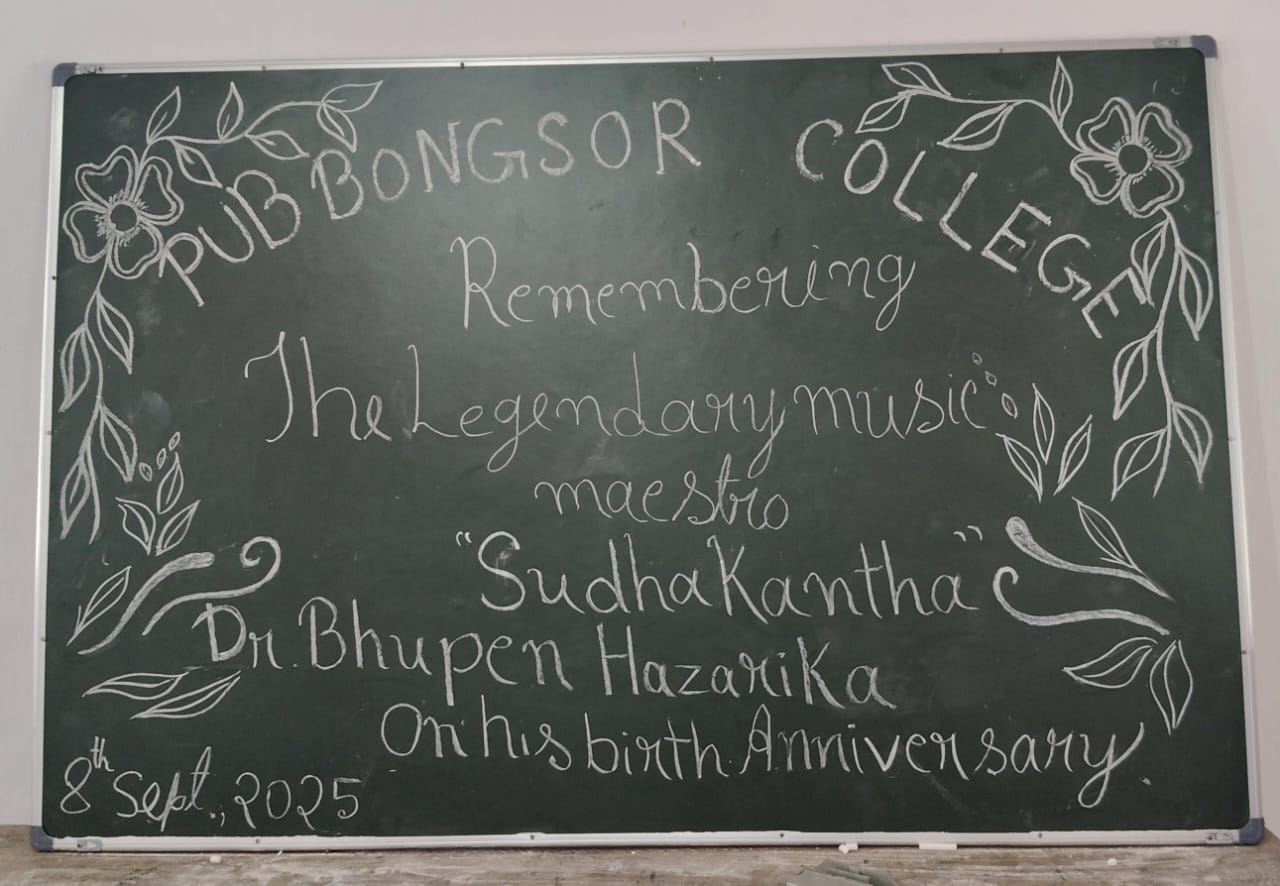 PUB BONGSOR COLLEGE
Remembering
The Legendary music
maestro
"SudhaKantha"
Dr. Bhupen HazariKa
On his birth Anniversary.
8th Sept., 2025